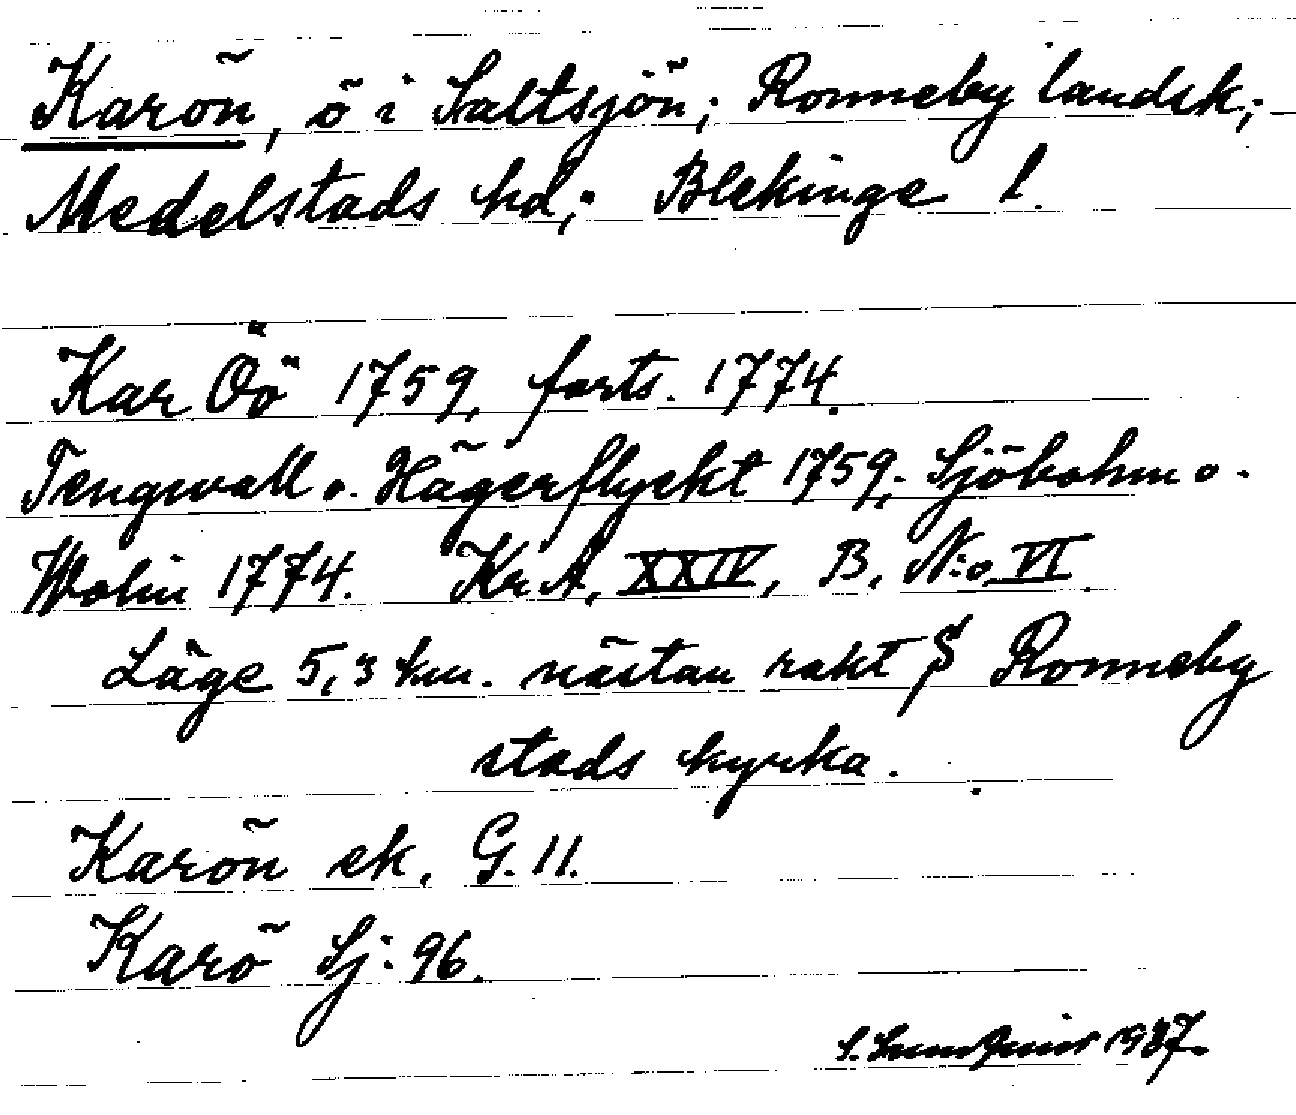 Karön, ö i Saltsjön; Ronneby landsk;
Medelstads hd; Blekinge l.
Kar Öö 1759, forts. 1774.
Tengwall o. Hägerflyckt 1759; Sjöbohm o.
Wolin 1774. Kr.A. XXIV, B, N:o VI.
Läge 5,3 km. nästan rakt S Ronneby
stads kyrka.
Karön ek. G. 11.
Karö Sj: 96.
S. 1937.